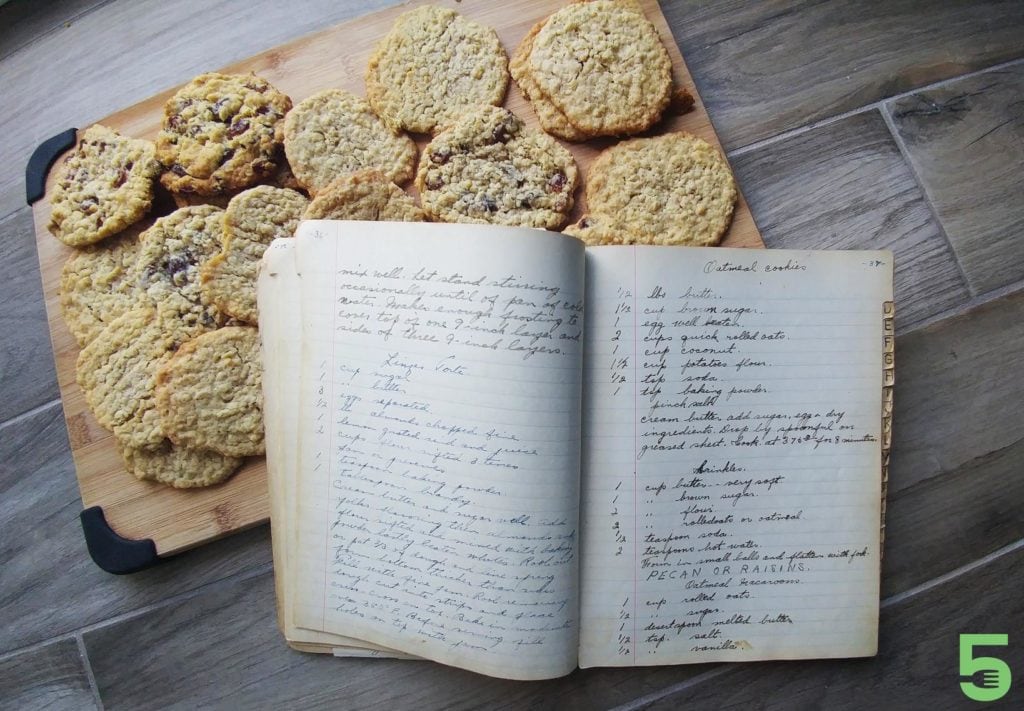 -36-
mix well. Let stand stirring
occasionally until of pan of cold
water. Makes enough frosting to
cover top of one 9 inch layer and
sides of three 9-inch layers.
Linzer Torte
1 cup sugar
1 " butter
3 eggs separated
1/2 lb almonds chopped fine
1 lemon grated rind and juice
2 cups flour sifted 3 times
Jam or preserves
1 teaspoon baking powder
1 tablespoon brandy
Cream butter and sugar well. add
yolks
flour sifted and mixed with baking
powder, lastly beaten whites. Roll out
or pat 2/3 of dough
form bottom thicker than sides
Fill with fine jam. Roll remaining
dough cut into strips and place
criss-cross on top. Bake in moderate
oven 350° F. Before serving fill
holes on top with jam
Oatmeal cookies -37-
1/2 lbs butter.
1 1/2 cup brown sugar.
1 egg well beaten.
2 cups quick rolled oats.
1 cup coconut.
1 1/2 cup potatoes flour.
1/2 tsp soda.
1 tsp baking powder.
pinch salt
cream butter add sugar, egg & dry
ingredients. Drop by spoonful on
greased sheet. Cook at 375° for 8 minutes.
Krinkles.
1 cup butter - very soft
1 " brown sugar.
2 " flour.
2 " rolledoats or oatmeal
1/2 teaspoon soda.
2 teaspoons hot water.
Form in small balls and flatten with fork.
PECAN OR RAISINS.
Oatmeal Macaroons.
1 cup rolled oats.
1/2 " sugar.
1 desertspoon melted butter
1/2 tsp. salt.
1/2 " vanilla.
D
E
F
G
5